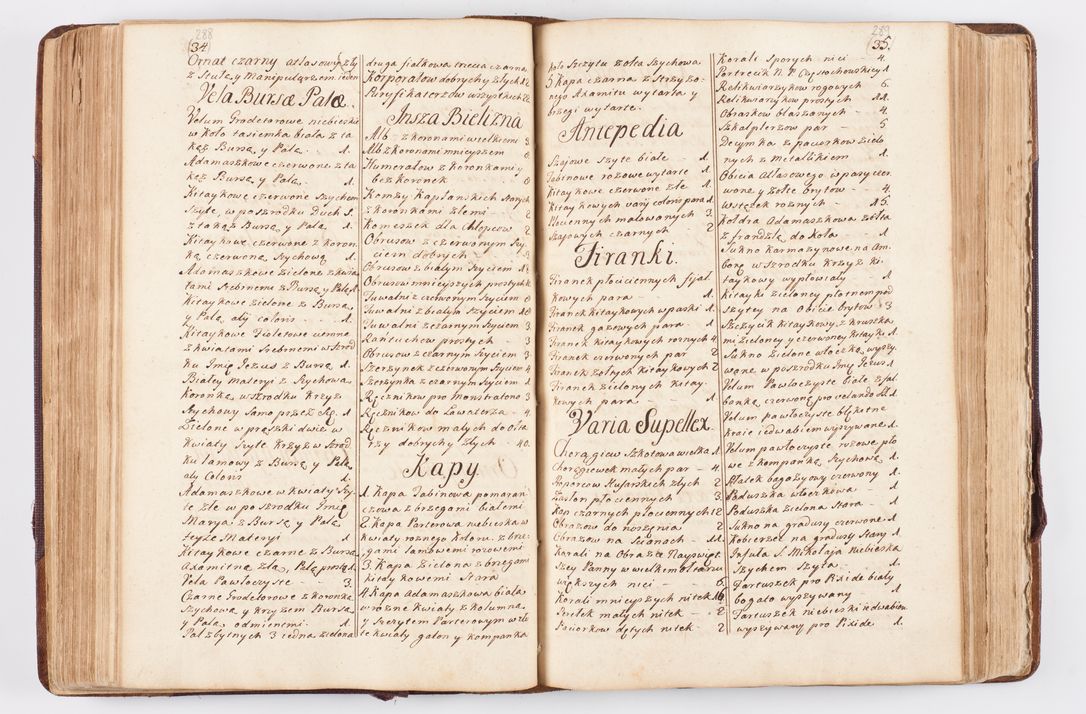 288
(34)
Ornat czarny atlasowy zły
z Stułą y Manipularzem ieden
Vela Bursæ Palæ
Velum Grodetorowe niebieskie
w Koło tasiemka biała z ta
kąż Bursą y Palą 1.
Adamaszkowe czerwone z ta
kąż Bursą y Palą 1.
Kitaykowe czerwone Szychem
Szyte, w poszrodku Duch S.
z takąż Bursą y Palą 1.
Kitaykowe czerwone z koron
ką czerwoną Szychową 1.
Adamaszkowe Zielone z kwia
tami Srebrnemi z Bursą y Palą 1.
Kitaykowe Zielone z Bursą
y Palą alÿ coloris 1.
Kitaykowe Fioletowe ciemne
z kwiatami Srebrnemi w Szrod
ku Imię Jezus z Bursą 1.
Białey materyi z Szychową
Koronką w szrodku Krzyż
Szychowy samo przez Się 1
Zielone w prąszki dwie w
Kwiaty Szyte Krzyż w Szrod
ku lamowy z Bursą y Palą
alÿ Coloris 1
Adamaszkowe w Kwiaty Szy
te złe w poszrodku Imię
Marya z Bursą y Palą
teyże Materyi 1
Kitaykowe czarne z Bursą
Axamitną złą, Palą prostą 1.
Vela Pawłoczyste 3.
Czarne Grodetorowe z Koronką
Szychową y Krzyżem Bursą
y Palą odmiennemi 1
Pal zbytnych 3 iedna zielona
druga fiałkowa trzecia czarna
Korporałow dobrych y złych 12
Puryfikaterzow wszystkich 22
Insza Bielizna
Alb z koronami wielkiemi 3
Alb z koronami mnieyszem 6
Humerałow z koronkami y
bez koronek 6
Komży Kapłanskich starych
z koronkami złemi 2
Komeszek dla Chłopcow 2
Obrusow z czerwonym Szy
ciem dobrych 3
Obrusow z białym Szyciem 12
Obrusow mnieyszych prostych
Tuwalni z czerwonym Szyciem 6
Tuwalni z białym Szyciem 10
Tuwalni z czarnym Szyciem 3
Rantuchow prostych 3
Obrusow z czarnym Szyciem 3
Szerzynek z czerwonym Szyciem 4
Szerzynka z czarnym Szyciem 1
Ręcznikow pro Monstratorio 3
Ręcznikow do Lawaterza 4.
Ręcznikow małych do Ołta
rzy dobrych y złych 40.
Kapy
1. Kapa Tabinowa pomaran
czowa z brzegami białemi
2 Kapa Parterowa niebieska w
kwiaty roznego Koloru. z brze-
gami lamowemi rozowemi
3. Kapa Zielona z brzegami
kitaykowemi stara
4 Kapa Adamaszkowa biała
w rozne kwiaty z kolumną
y Szczytem Parterowym w zło
te kwiaty galon y kompanka
289
(35)
koło Szczytu złota Szychowa
5 Kapa czarna z Strzyżo-
nego Axamitu wytarta y
brzegi wytarte.
Antepedia
Szaiowe szyte białe 1.
Tabinowe rozowe wytarte 1.
Kitaykowe czerwone złe 1.
Kitaykowych varÿ coloris para 1.
Płociennych malowanych 3.
Szaiowych czarnych 2
Firanki.
Firanek płociennych fijał
kowych para 1.
Firanek kitaykowych w paski 1.
Firanek gazowych para 1
Firanek kitaykowych roznych 4
Firanek czerwonych par 2
Firanek żołtych kitaykowych 2
Firanek Zielonych kitay-
kowych para 1
Varia Supellex
Chorągiew Szkotowa wielka 1
Chorągiewek małych par 4.
Proporcow Husarskich złych 2
Zasłon płociennych 3
Kap czarnych płociennych 12
Obrazow do noszenia 2
Obrazow na Scianach 11.
Korali na Obrazie Nayswięt
szey Panny w wielkim ołtarzu
większych nici 6
Korali mnieyszych nitek 16
Perełek małych nitek 2
Paciorkow dętych nitek 2
Korali Sporych nici 4
Portrecik N. P. Częstochowskiey 1
Relikwiarzykow rogowych 6.
Relikwiarzykow prostych 11.
Obrazkow blaszanych 4.
Szkaplerzow par 5
Decymka z paciorkow zielo
nych z Metalikiem 1.
Obicia Atlasowego w pasy czer.
wone y żołte brytow 4.
Wstążek roznych 15.
Kołdra Adamaszkowa żołta
z frandzlą do Koła 1.
Sukno karmazynowe na Am.
bonę w Szrodku Krzyż Ki-
taykowy wypłowiały 1
Kitayki zieloney płotnem pod
szytey na Obicie brytow 3
Szczycik kitaykowy z kruszką
mi zieloney y czerwoney kitayki 1.
Sukno Zielone włoczką wyszy,
wane w poszrodku Imę Jezus 1
Velum Pawłoczyste białe z fal
banką czerwoną pro velando SS 1
Velum pawłoczyste błękitne
kraie iedwabiem wyszywane 1.
Velum pawłoczyste rożowe pło
we z kompanką Szychową 1.
Płatek bagaziowy czerwony 1
Poduszka włoczkowa 1
Poduszka Zielona stara 1
Sukno na gradusy czerwone 1
Kobierzec na gradusy stary 1
Infuła S. Mikołaja niebieska
Szychem Szyta 1.
Fartuszek pro Pixide biały
bogato wyszywany 1
Fartuszek niebieski iedwabiem
wyszywany pro Pixide 1.